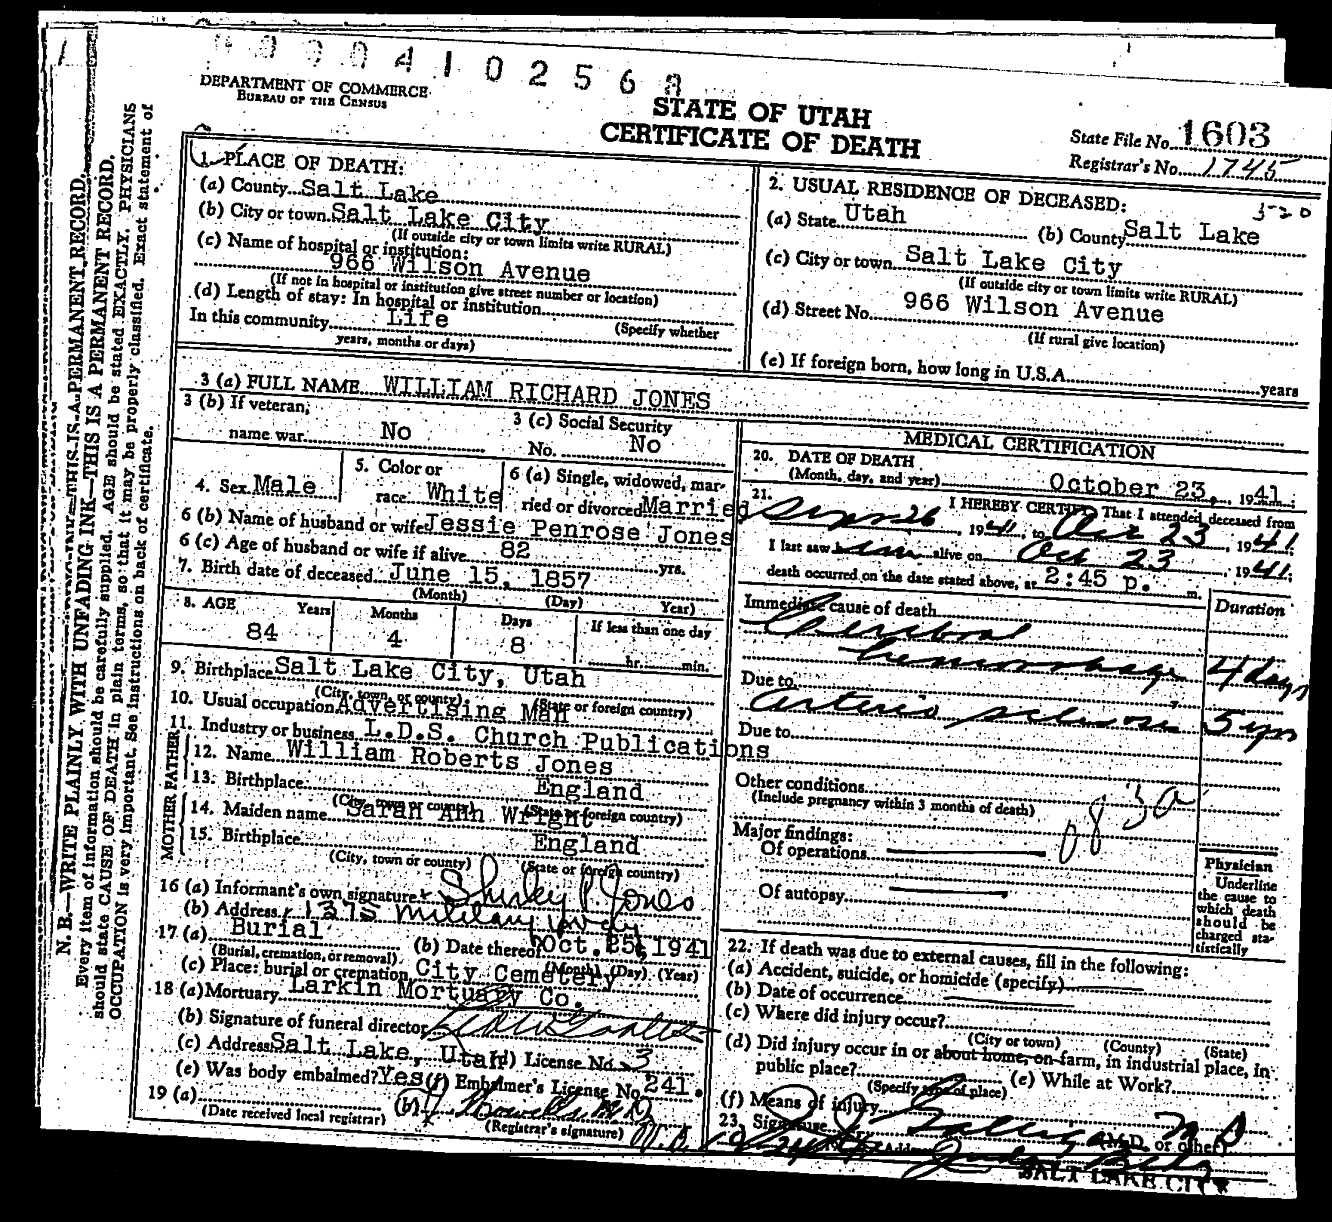 41025
DEPARTMENT OF COMMERCE
BUREAU OF THE CENSUS
STATE OF UTAH
CERTIFICATE OF DEATH
State File No. 1603
Registrar's No. 1745
N. B.—WRITE PLAINLY WITH UNFADING INK—THIS IS A PERMANENT RECORD.
Every item of information should be carefully supplied. AGE should be stated EXACTLY. PHYSICIANS
should state CAUSE OF DEATH in plain terms, so that it may be properly classified. Exact statement of
OCCUPATION is very important. See instructions on back of certificate.
1. PLACE OF DEATH:
(a) County Salt Lake
(b) City or town Salt Lake City
(If outside city or town limits write RURAL)
(c) Name of hospital or institution:
966 Wilson Avenue
(If not in hospital or institution give street number or location)
(d) Length of stay: In hospital or institution
(Specify whether
In this community Life
years, months or days)
2. USUAL RESIDENCE OF DECEASED:
(a) State Utah (b) County Salt Lake
(c) City or town Salt Lake City
(If outside city or town limits write RURAL)
(d) Street No. 966 Wilson Avenue
(If rural give location)
(e) If foreign born, how long in U.S.A. years
3 (a) FULL NAME WILLIAM RICHARD JONES
3 (b) If veteran, name war No
3 (c) Social Security No. No
4. Sex Male
5. Color or race White
6 (a) Single, widowed, married or divorced Married
6 (b) Name of husband or wife Jessie Penrose Jones
6 (c) Age of husband or wife if alive 82 yrs.
7. Birth date of deceased June 15, 1857
(Month) (Day) Year)
8. AGE Years Months Days If less than one day
84 4 8 hr. min.
9. Birthplace Salt Lake City, Utah
(City, town, or county) (State or foreign country)
10. Usual occupation Advertising Man
11. Industry or business L.D.S. Church Publications
FATHER
12. Name William Roberts Jones
13. Birthplace England
(City, town or county) (State or foreign country)
MOTHER
14. Maiden name Sarah Ann Wright
15. Birthplace England
(City, town or county) (State or foreign country)
16 (a) Informant's own signature Shirley P. Jones
(b) Address 1375 Military Way
17 (a) Burial (b) Date thereof Oct. 25, 1941
(Burial, cremation, or removal) (Month) (Day) (Year)
(c) Place: burial or cremation City Cemetery
18 (a) Mortuary Larkin Mortuary Co.
(b) Signature of funeral director
(c) Address Salt Lake, Utah (d) License No. 3
(e) Was body embalmed? Yes (f) Embalmer's License No. 241.
19 (a) (b)
(Date received local registrar) (Registrar's signature)
MEDICAL CERTIFICATION
20. DATE OF DEATH
(Month, day, and year) October 23, 1941
21. I HEREBY CERTIFY That I attended deceased from
Sept 26, 1941, to Oct 23, 1941;
I last saw him alive on Oct 23, 1941;
death occurred on the date stated above, at 2:45 p. m.
Immediate cause of death Duration
Cerebral
hemorrhage 4 days
Due to
Arterio sclerosis 5 yrs
Due to
Other conditions
(Include pregnancy within 3 months of death)
83a
Major findings:
Of operations
Of autopsy
Physician
Underline
the cause to
which death
should be
charged sta-
tistically
22. If death was due to external causes, fill in the following:
(a) Accident, suicide, or homicide (specify)
(b) Date of occurrence
(c) Where did injury occur?
(City or town) (County) (State)
(d) Did injury occur in or about home, on farm, in industrial place, in
public place? (e) While at Work?
(Specify type of place)
(f) Means of injury
23. Signature M D
(M.D. or other)
Judge Bldg
SALT LAKE CITY